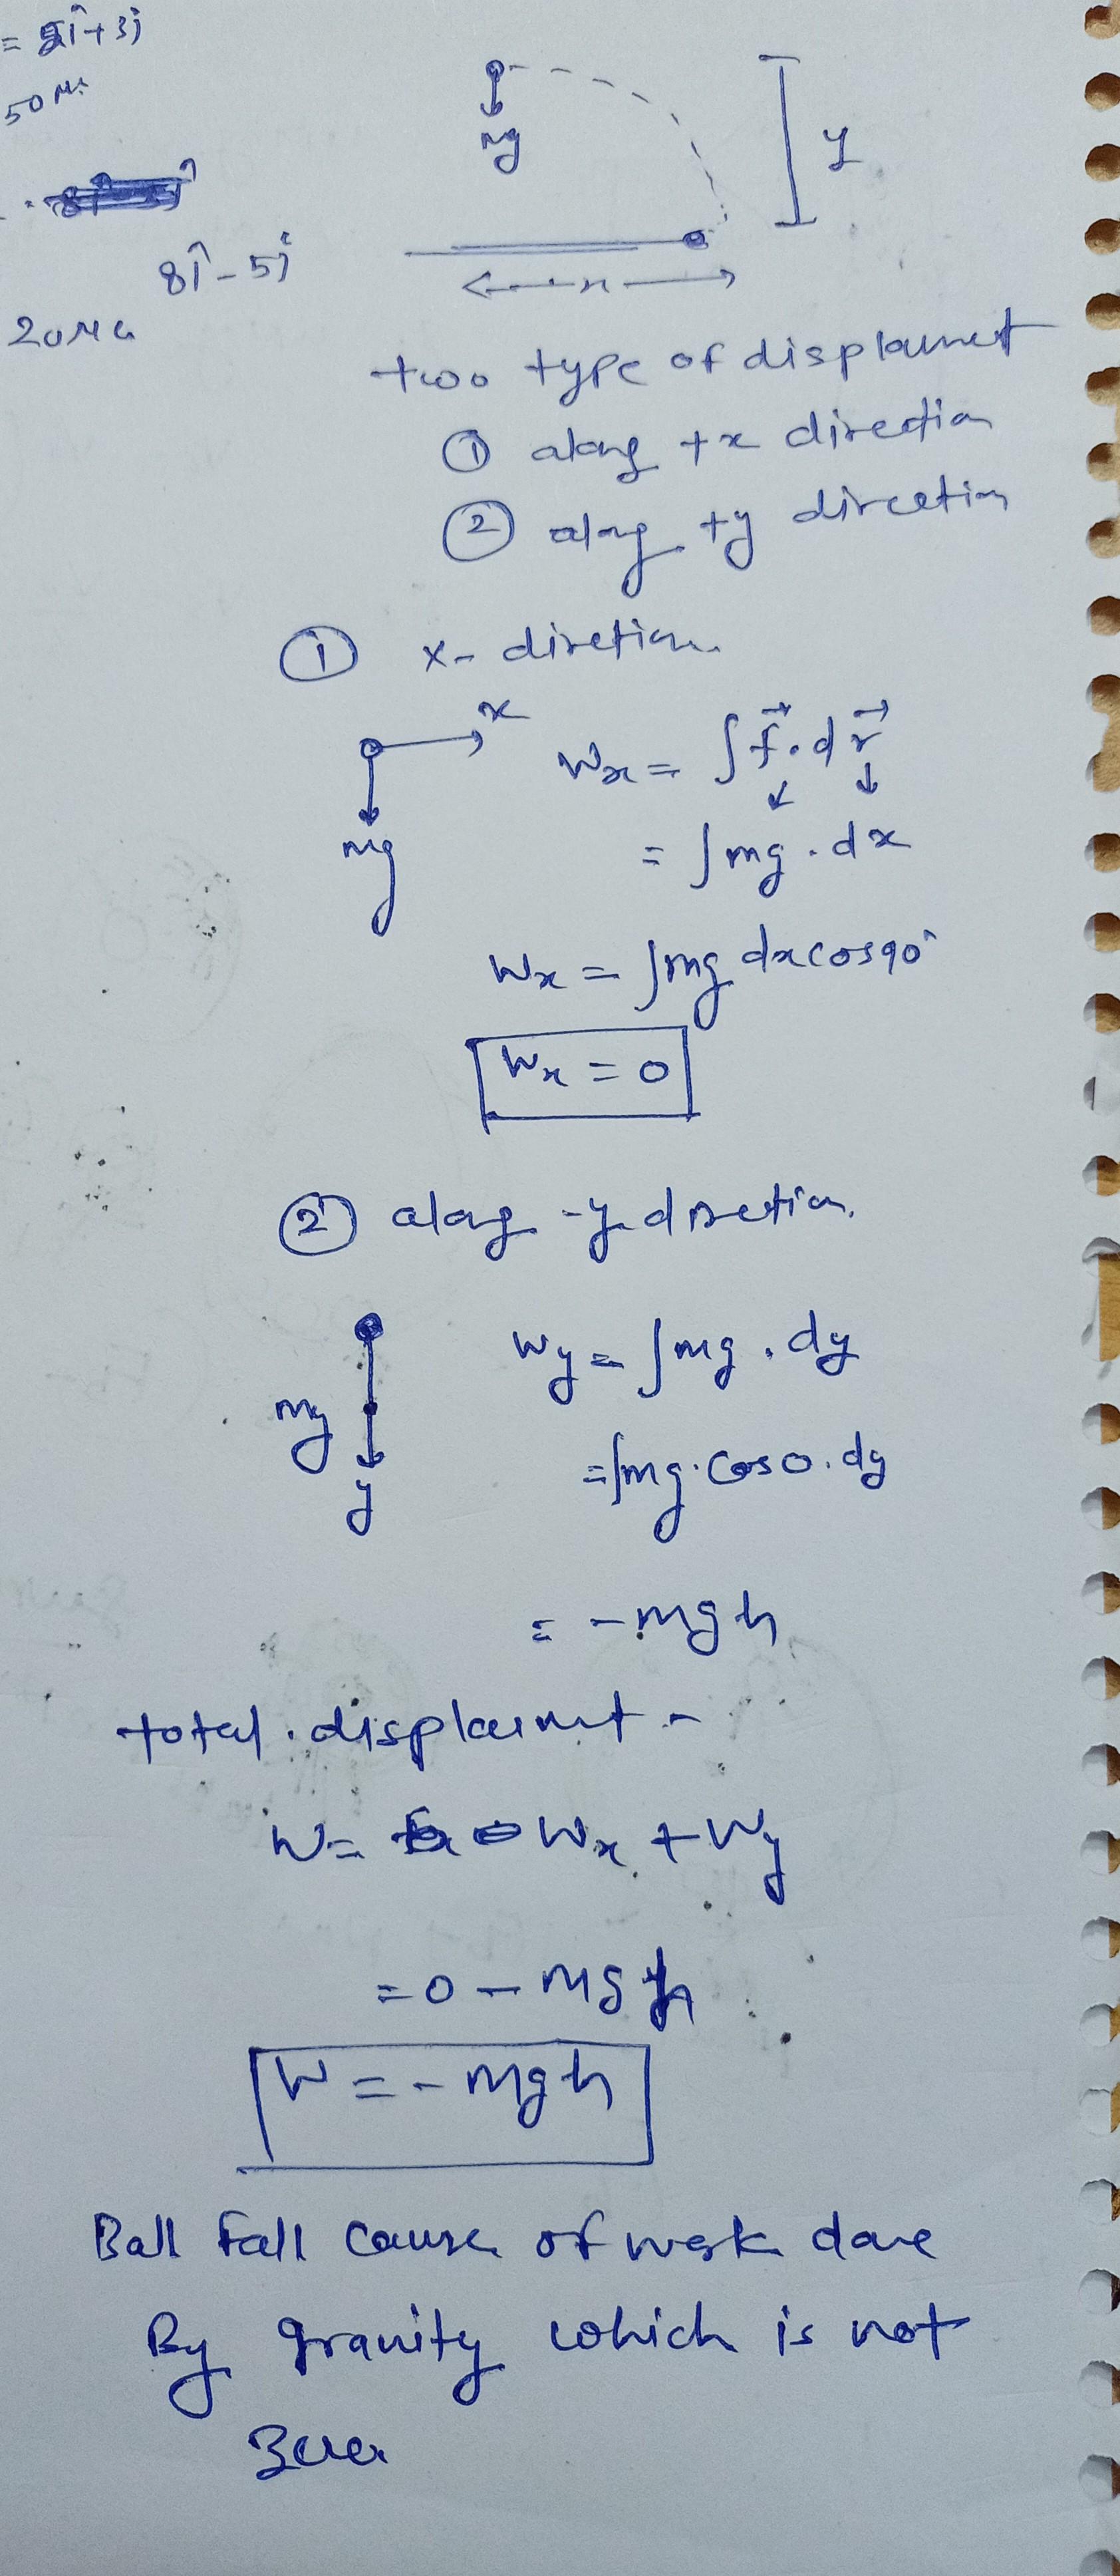 = 5î+3ĵ
50 Ms
8î-5ĵ
mg
y
8î-5ĵ
x
20Ms
two type of displacment
① along +x direction
② along +y direction
① x- diretion
x
Wx = ∫f⃗.dr⃗
mg
= ∫mg.dx
Wx = ∫mg dxcos90°
Wx = 0
② along -y direction.
Wy = ∫mg.dy
mg
=∫mg.cos0.dy
y
= -mgh
total displacment -
W= Wx + Wy
=0 - mgh
W = - mgh
Ball fall cause of work done
By gravity which is not
zero